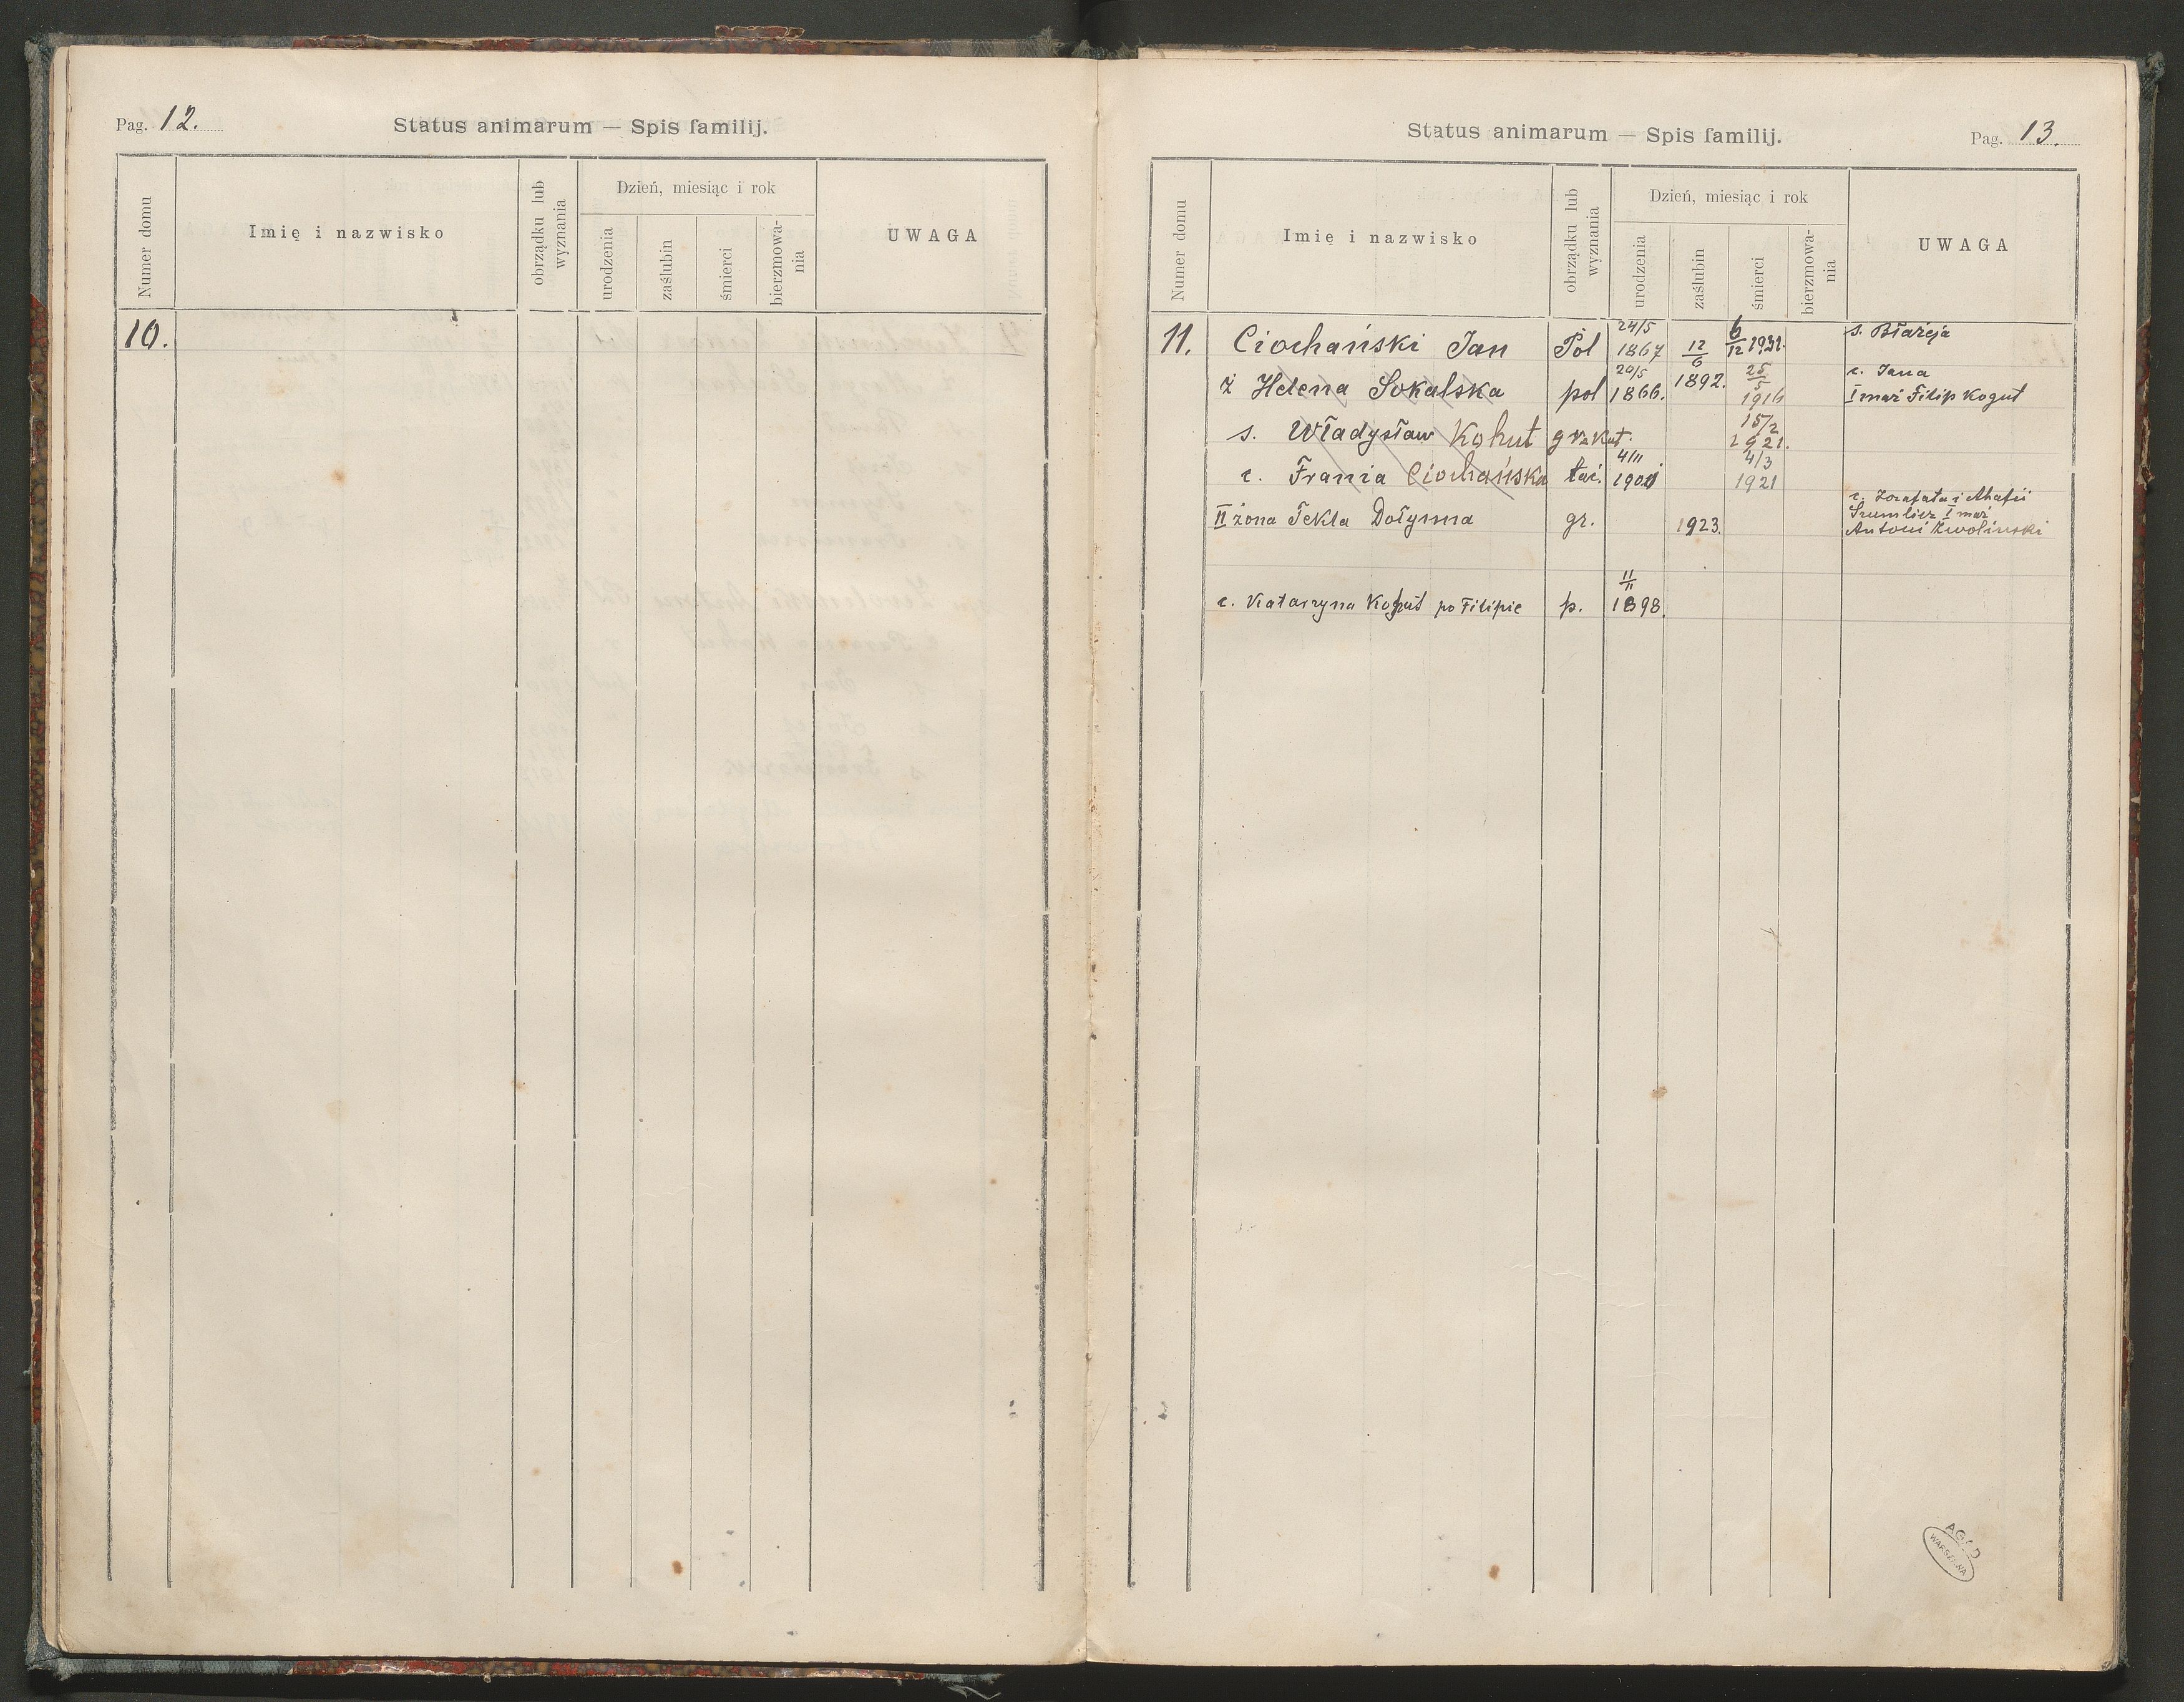 Pag. 12.
Status animarum — Spis familij.
Numer domu
Imię i nazwisko
obrządku lub wyznania
Dzień, miesiąc i rok
urodzenia
zaślubin
śmierci
bierzmowa-
nia
UWAGA
10.
Status animarum — Spis familij.
Pag. 13.
Numer domu
Imię i nazwisko
obrządku lub wyznania
Dzień, miesiąc i rok
urodzenia
zaślubin
śmierci
bierzmowa-
nia
UWAGA
11. Ciochański Jan Pol 24/5 1867 12/6 1892. 6/12 1931. s. Błażeja
ż Helena Sokalska pol 20/5 1866. 25/5 1916 c. Jana
I mąż Filip Kogut
s. Władysław Kohut gr. kat. 15/2 1921.
c. Frania Ciochańska łać. 4/11 1901 4/3 1921
II żona Tekla Dołynna gr. 1923. c. Jozafata i Ahafii
I mąż
Antoni Zwoliński
c. Katarzyna Kohut po Filipie p. 11/11 1898.
AGAD
WARSZAWA